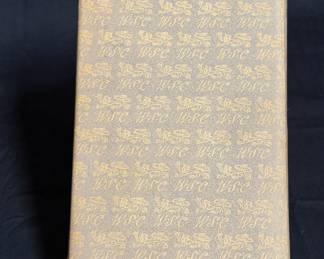 WSC WSC WSC WSC WSC
WSC WSC WSC WSC WSC
WSC WSC WSC WSC WSC
WSC WSC WSC WSC WSC
WSC WSC WSC WSC WSC
WSC WSC WSC WSC WSC
WSC WSC WSC WSC WSC
WSC WSC WSC WSC WSC